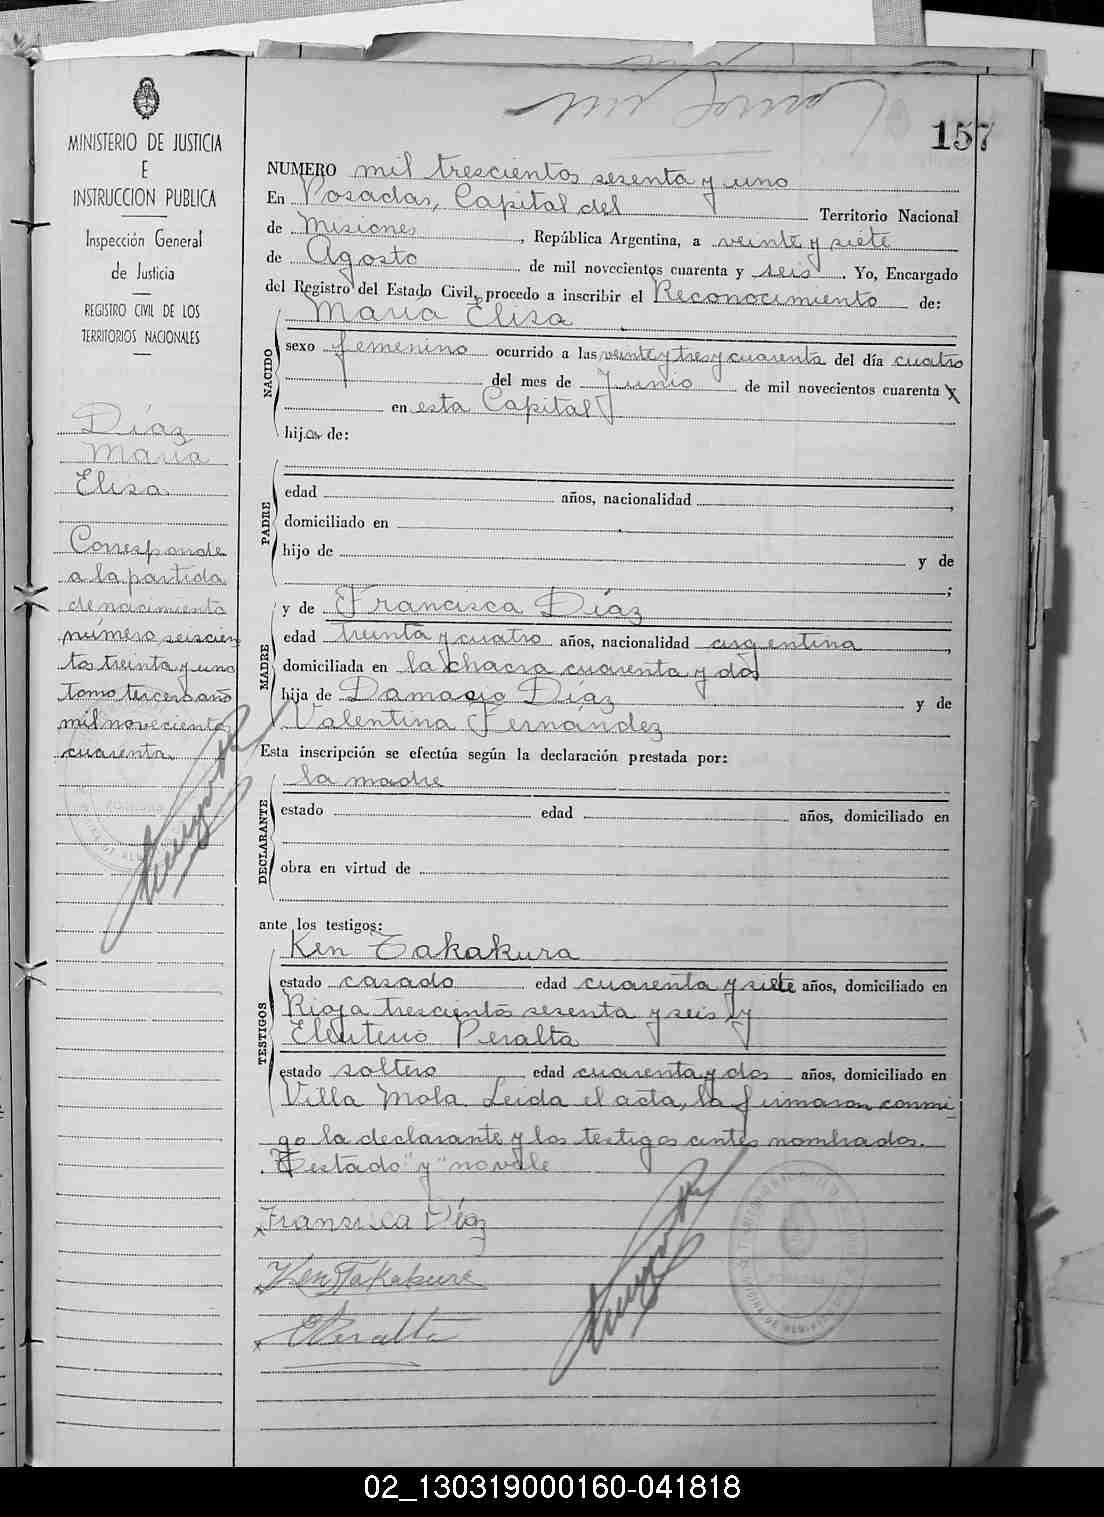 157
MINISTERIO DE JUSTICIA
E
INSTRUCCION PUBLICA
Inspección General
de Justicia
REGISTRO CIVIL DE LOS
TERRITORIOS NACIONALES
Díaz
María
Elisa
Corresponde
a la partida
de nacimiento
número seiscien
tos treinta y uno
tomo tercero año
mil novecientos
cuarenta.
NUMERO mil trescientos sesenta y uno
En Posadas, Capital del Territorio Nacional
de Misiones, República Argentina, a veinte y siete
de Agosto de mil novecientos cuarenta y seis. Yo, Encargado
del Registro del Estado Civil, procedo a inscribir el Reconocimiento de:
NACIDO
María Elisa
sexo femenino ocurrido a las veinte y tres y cuarenta del día cuatro
del mes de Junio de mil novecientos cuarenta y
en esta Capital
hija de:
PADRE
edad años, nacionalidad ,
domiciliado en
hijo de y de
;
MADRE
y de Francisca Díaz
edad treinta y cuatro años, nacionalidad argentina,
domiciliada en la chacra cuarenta y dos
hija de Damacio Díaz y de
Valentina Fernández
Esta inscripción se efectúa según la declaración prestada por:
DECLARANTE
la madre
estado edad años, domiciliado en
obra en virtud de
ante los testigos:
TESTIGOS
Ken Takakura
estado casado edad cuarenta y siete años, domiciliado en
Rioja trescientos sesenta y seis y
Eleuterio Peralta
estado soltero edad cuarenta y dos años, domiciliado en
Villa Mola. Leida el acta, la firmaron conmi
go la declarante y los testigos antes nombrados.
Testado "y" no vale
Fransisca Díaz
Ken Takakura
E Peralta
02_130319000160-041818